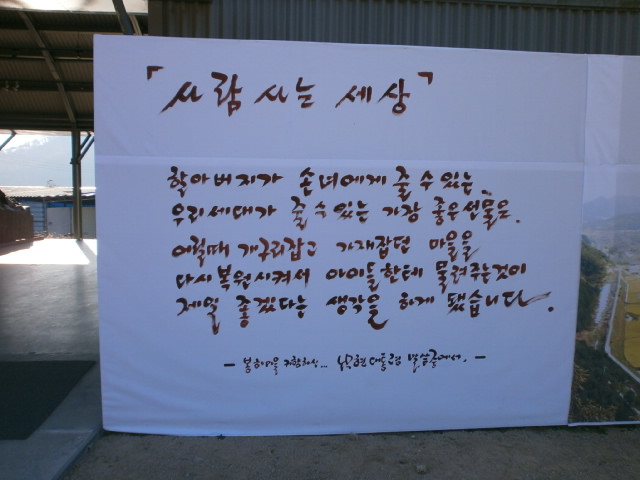 「사람 사는 세상」
할아버지가 손녀에게 줄 수 있는,
우리세대가 줄 수 있는 가장 좋은 선물은,
어릴때 개구리잡고 가재잡던 마을을
다시 복원시켜서 아이들한테 물려주는것이
제일 좋겠다는 생각을 하게 됐습니다.
- 봉하마을 귀향하신... 노무현 대통령 말씀중에서. -